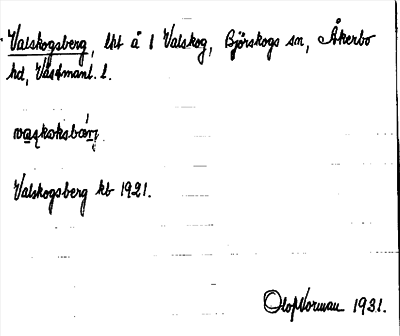 Valskogsberg, lht å 1 Valskog, Björskogs sn, Åkerbo
hd, Västmanl. l.
Valskogsberg kb 1921.
Olof Norman 1931.